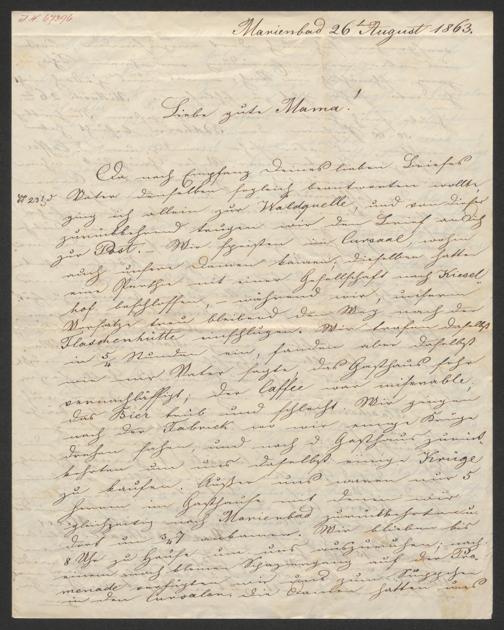 J.N. 67396
Marienbad 26t August 1863.
Liebe gute Mama!
Da nach Empfang Deines lieben Briefes
Vater denselben sogleich beantworten wollte,
ging ich allein zur Waldquelle, und von dieser
zurückkehrend trugen wir den Brief auch
zur Post. Wir speisten im Cursaal, wohin
auch unsere Damen kamen, dieselben hatten
eine Parthie mit einer Gesellschaft nach Kiesel-
hof beschlossen, während wir, unserm
Vorsatze treu bleibend den Weg nach der
Flaschenhütte einschlugen. Wir trafen daselbst
in 5/4 Stunden ein, fanden aber daselbst
wie mir Vater sagte, das Gasthaus sehr
vernachlässigt; der Caffee war miserable,
das Bier trüb und schlecht. Wir gingen
nach der Fabrick wo wir einige Krüge
drehen sahen und nach d Gasthaus zurück
kehrten um uns daselbst einige Krüge
zu kaufen. Außer uns waren nur 5
Herren im Gasthause mit denen wir
gleichzeitig nach Marienbad zurückkehrten u
dort um 3/4 7 ankamen. Wir blieben bis
8 Uhr zu Hause um uns auszuruhen; nach
einem noch kleinen Spaziergang auf der Pro-
menade verfügten wir uns zum Süppchen
in den Cursalon. Die Damen hatten uns